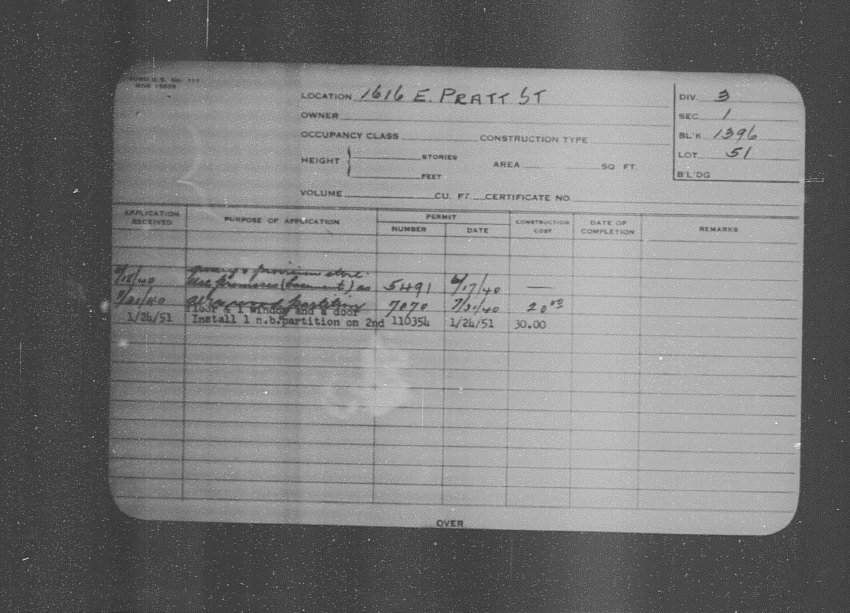 LOCATION 1616 E. PRATT ST
DIV. 3
OWNER
SEC 1
OCCUPANCY CLASS CONSTRUCTION TYPE
BL'K 1396
HEIGHT STORIES AREA SQ. FT.
LOT 51
FEET
B'L'DG
VOLUME CU. FT. CERTIFICATE NO.
APPLICATION RECEIVED PURPOSE OF APPLICATION PERMIT CONSTRUCTION COST DATE OF COMPLETION REMARKS
NUMBER DATE
grocery & provision store.
6/18/40 Use premises (basement) as 5491 6/17/40 —
7/21/40 wood partition 7070 7/31/40 20.00
floor & 1 window and a door
1/24/51 Install 1 n.b.partition on 2nd 110354 1/24/51 30.00
OVER